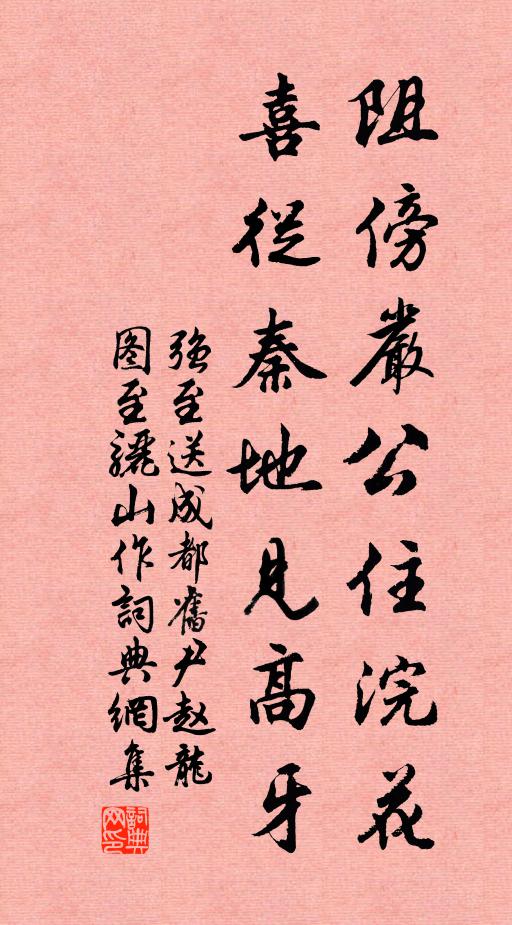 阻傍嚴公住浣花
喜從秦地見高牙
强至送成都舊尹赵龍
图至驪山作詞典網集
詞典网印